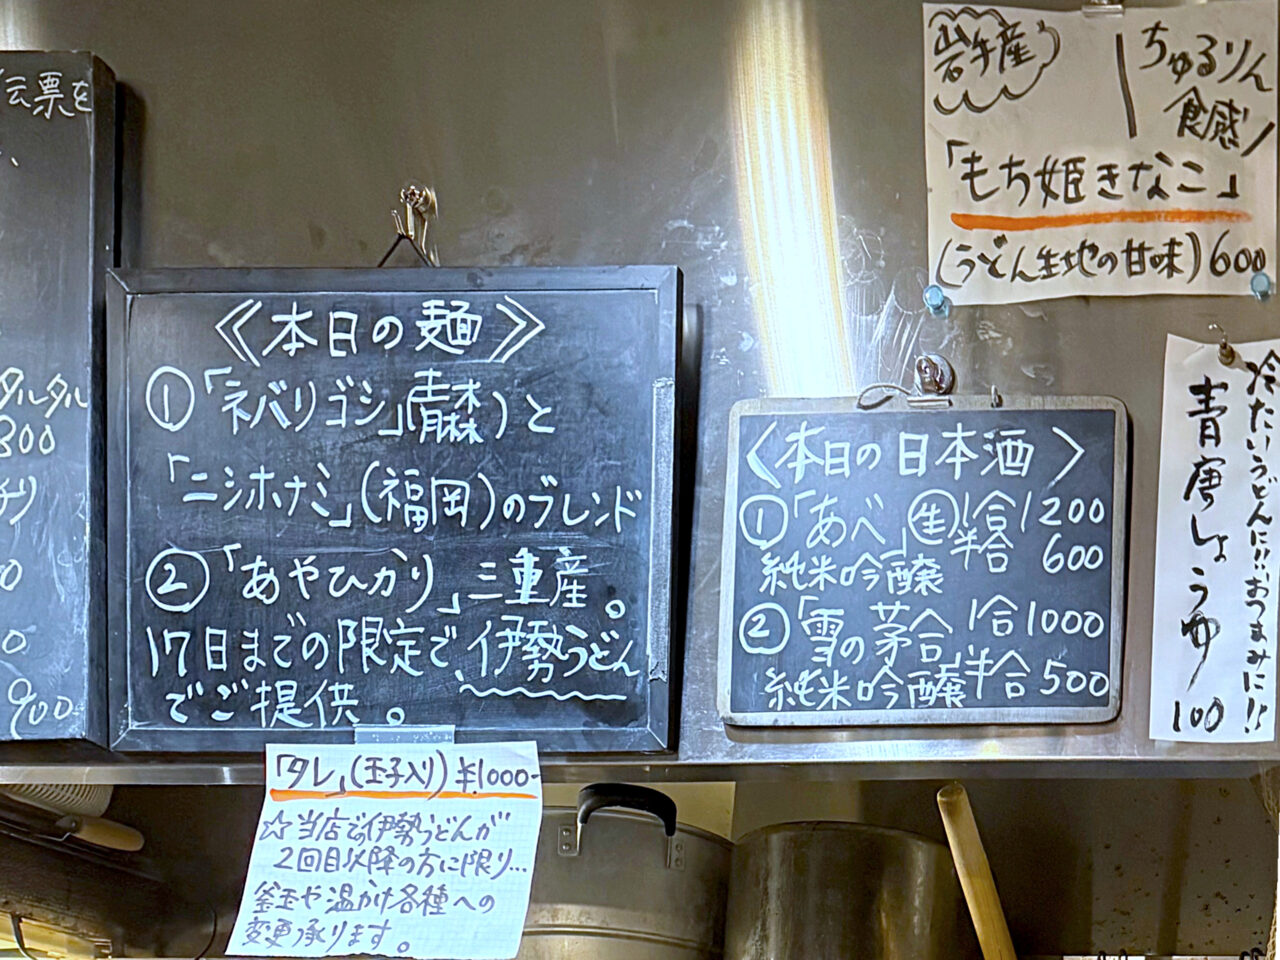 伝票を
タルタル
300
0
0
900
≪本日の麺≫
①「ネバリゴシ」(青森)と
「ニシホナミ」(福岡)のブレンド
②「あやひかり」三重産。
17日までの限定で、伊勢うどん
でご提供。
「タレ」(玉子入り)¥1000-
☆当店での伊勢うどんが
2回目以降の方に限り…
釜玉や温かけ各種への
変更承ります。
〈本日の日本酒〉
①「あべ」生 1合1200
純米吟醸 半合 600
②「雪の茅舎」1合1000
純米吟醸 半合500
岩手産
ちゅるりん
食感!
「もち姫きなこ」
(うどん生地の甘味)600
冷たいうどんに!!おつまみに!!
青唐しょうゆ 100